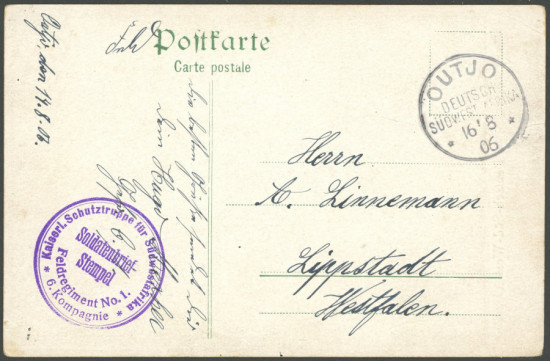 Postkarte
Carte postale
OUTJO
DEUTSCH
SÜDWESTAFRIKA
16/8
06
Herrn
A. Linnemann
Lippstadt
Westfalen.
Kaiserl. Schutztruppe für Südwestafrika
Soldatenbrief-
Stempel
Feldregiment No. 1.
6. Kompagnie
den 14.8.06.
Die besten Grüße sendet Dir
Dein Hugo